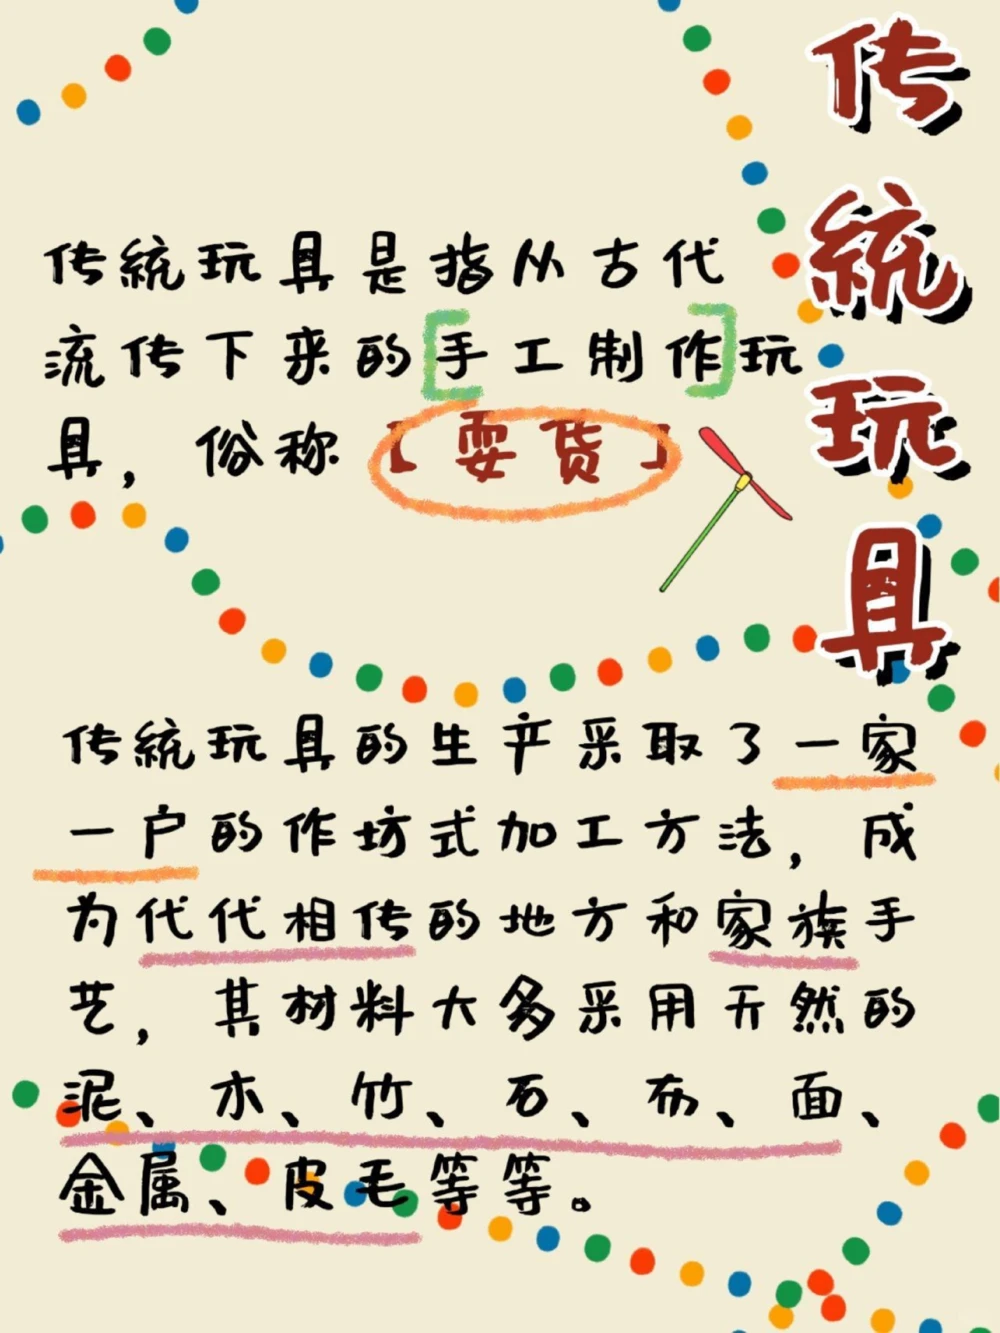 传統玩具
传統玩具是指从古代
流传下来的[手工制作]玩
具，俗称【耍货】
传統玩具的生产采取了一家
一户的作坊式加工方法，成
为代代相传的地方和家族手
艺，其材料大多采用天然的
泥、木、竹、石、布、面、
金属、皮毛等等。